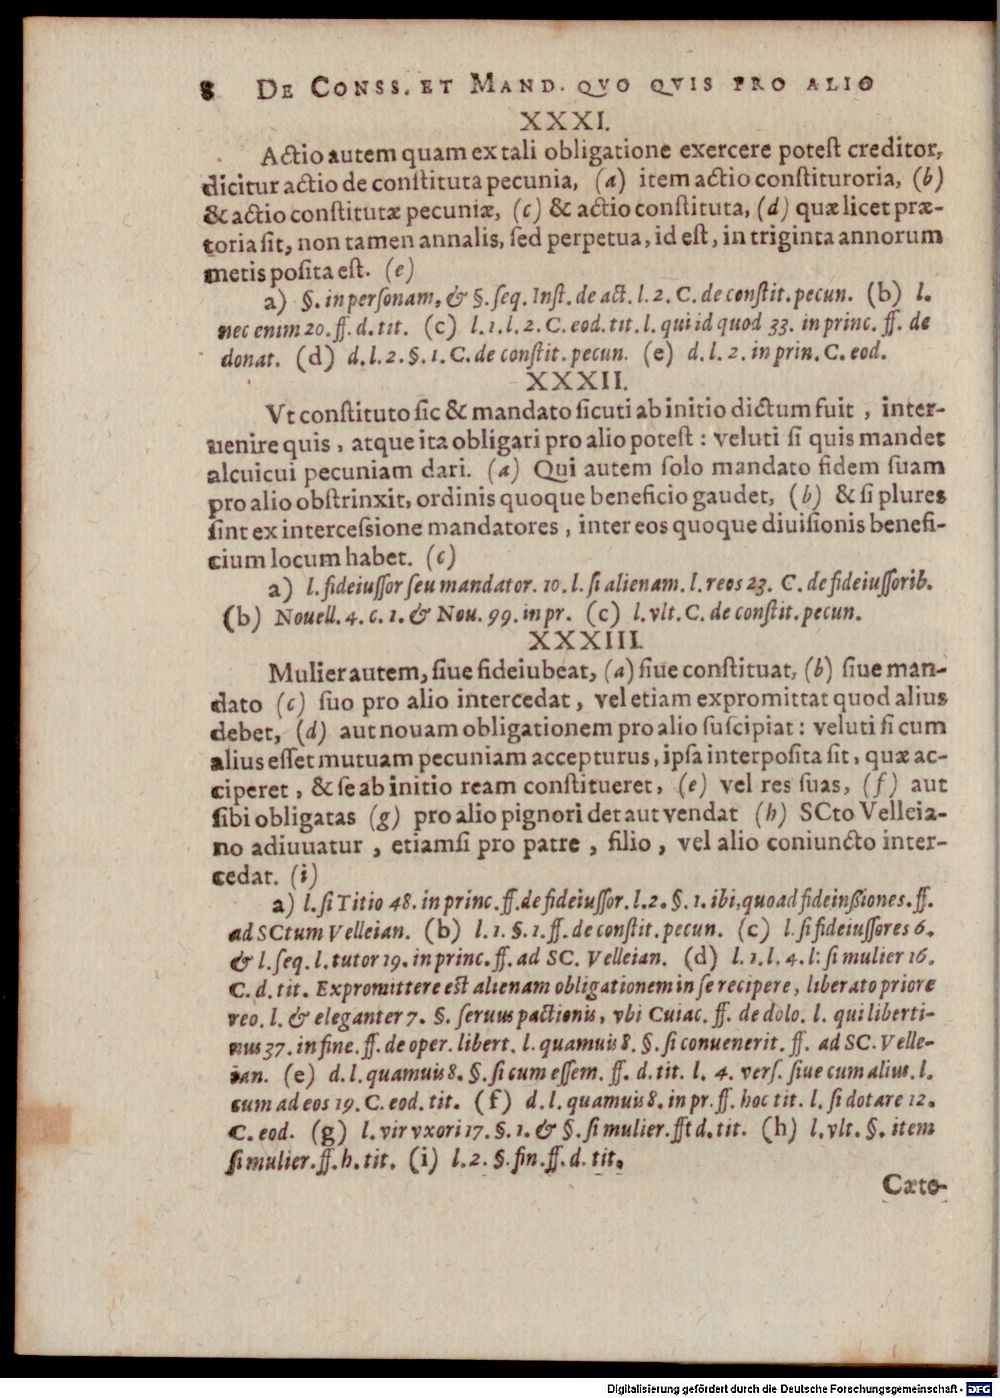 8 DE CONSS. ET MAND. QVO QVIS PRO ALIO
XXXI.
Actio autem quam ex tali obligatione exercere potest creditor,
dicitur actio de constituta pecunia, (a) item actio constituroria, (b)
& actio constitutæ pecuniæ, (c) & actio constituta, (d) quæ licet præ-
toria sit, non tamen annalis, sed perpetua, id est, in triginta annorum
metis posita est. (e)
a) §. in personam, & §. seq. Inst. de act. l. 2. C. de constit. pecun. (b) l.
nec enim 20. ff. d. tit. (c) l. 1. l. 2. C. eod. tit. l. qui id quod 33. in princ. ff. de
donat. (d) d. l. 2. §. 1. C. de constit. pecun. (e) d. l. 2. in prin. C. eod.
XXXII.
Vt constituto sic & mandato sicuti ab initio dictum fuit , inter-
uenire quis , atque ita obligari pro alio potest : veluti si quis mandet
alcuicui pecuniam dari. (a) Qui autem solo mandato fidem suam
pro alio obstrinxit, ordinis quoque beneficio gaudet, (b) & si plures
sint ex intercessione mandatores , inter eos quoque diuisionis benefi-
cium locum habet. (c)
a) l. fideiussor seu mandator. 10. l. si alienam. l. reos 23. C. de fideiussorib.
(b) Nouell. 4. c. 1. & Nou. 99. in pr. (c) l. vlt. C. de constit. pecun.
XXXIII.
Mulier autem, siue fideiubeat, (a) siue constituat, (b) siue man-
dato (c) suo pro alio intercedat , vel etiam expromittat quod alius
debet, (d) aut nouam obligationem pro alio suscipiat : veluti si cum
alius esset mutuam pecuniam accepturus, ipsa interposita sit, quæ ac-
ciperet , & se ab initio ream constitueret, (e) vel res suas, (f) aut
sibi obligatas (g) pro alio pignori det aut vendat (h) SCto Velleia-
no adiuuatur , etiamsi pro patre , filio , vel alio coniuncto inter-
cedat. (i)
a) l. si Titio 48. in princ. ff. de fideiussor. l. 2. §. 1. ibi, quo ad fideinßiones. ff.
ad SCtum Velleian. (b) l. 1. §. 1. ff. de constit. pecun. (c) l. si fideiussores 6.
& l. seq. l. tutor 19. in princ. ff. ad SC. Velleian. (d) l. 1. l. 4. l: si mulier 16.
C. d. tit. Expromittere est alienam obligationem in se recipere, liberato priore
reo. l. & eleganter 7. §. seruus pactionis, vbi Cuiac. ff. de dolo. l. qui liberti-
nus 37. in fine. ff. de oper. libert. l. quamuis 8. §. si conuenerit. ff. ad SC. Velle-
ian. (e) d. l. quamuis 8. §. si cum essem. ff. d. tit. l. 4. vers. siue cum alius. l.
cum ad eos 19. C. eod. tit. (f) d. l. quamuis 8. in pr. ff. hoc tit. l. si dotare 12.
C. eod. (g) l. vir vxori 17. §. 1. & §. si mulier. fft d. tit. (h) l. vlt. §. item
si mulier. ff. h. tit. (i) l. 2. §. fin. ff. d. tit.
Cæte-
Digitalisierung gefördert durch die Deutsche Forschungsgemeinschaft - DFG